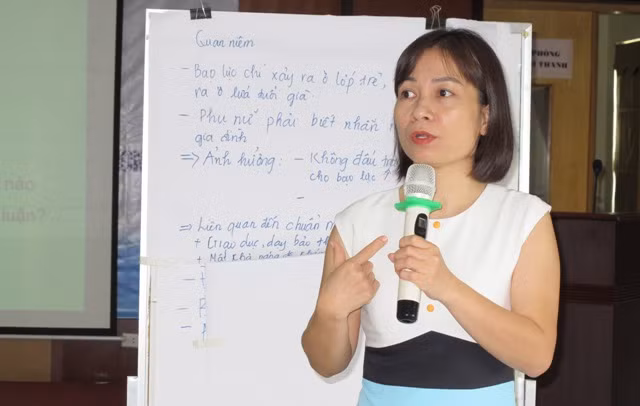 Quan niệm
- Bạo lực chỉ xảy ra ở lớp trẻ,
ra ở lứa tuổi già
- Phụ nữ phải biết nhẫn
gia đình
=> Ảnh hưởng: - Không đấu
cho bạo lực ↑
-
=> Liên quan đến chuẩn
+ Giáo dục, dạy bảo
+ Một nhà
-
-
-
nào
luận?
PHÒNG
THANH